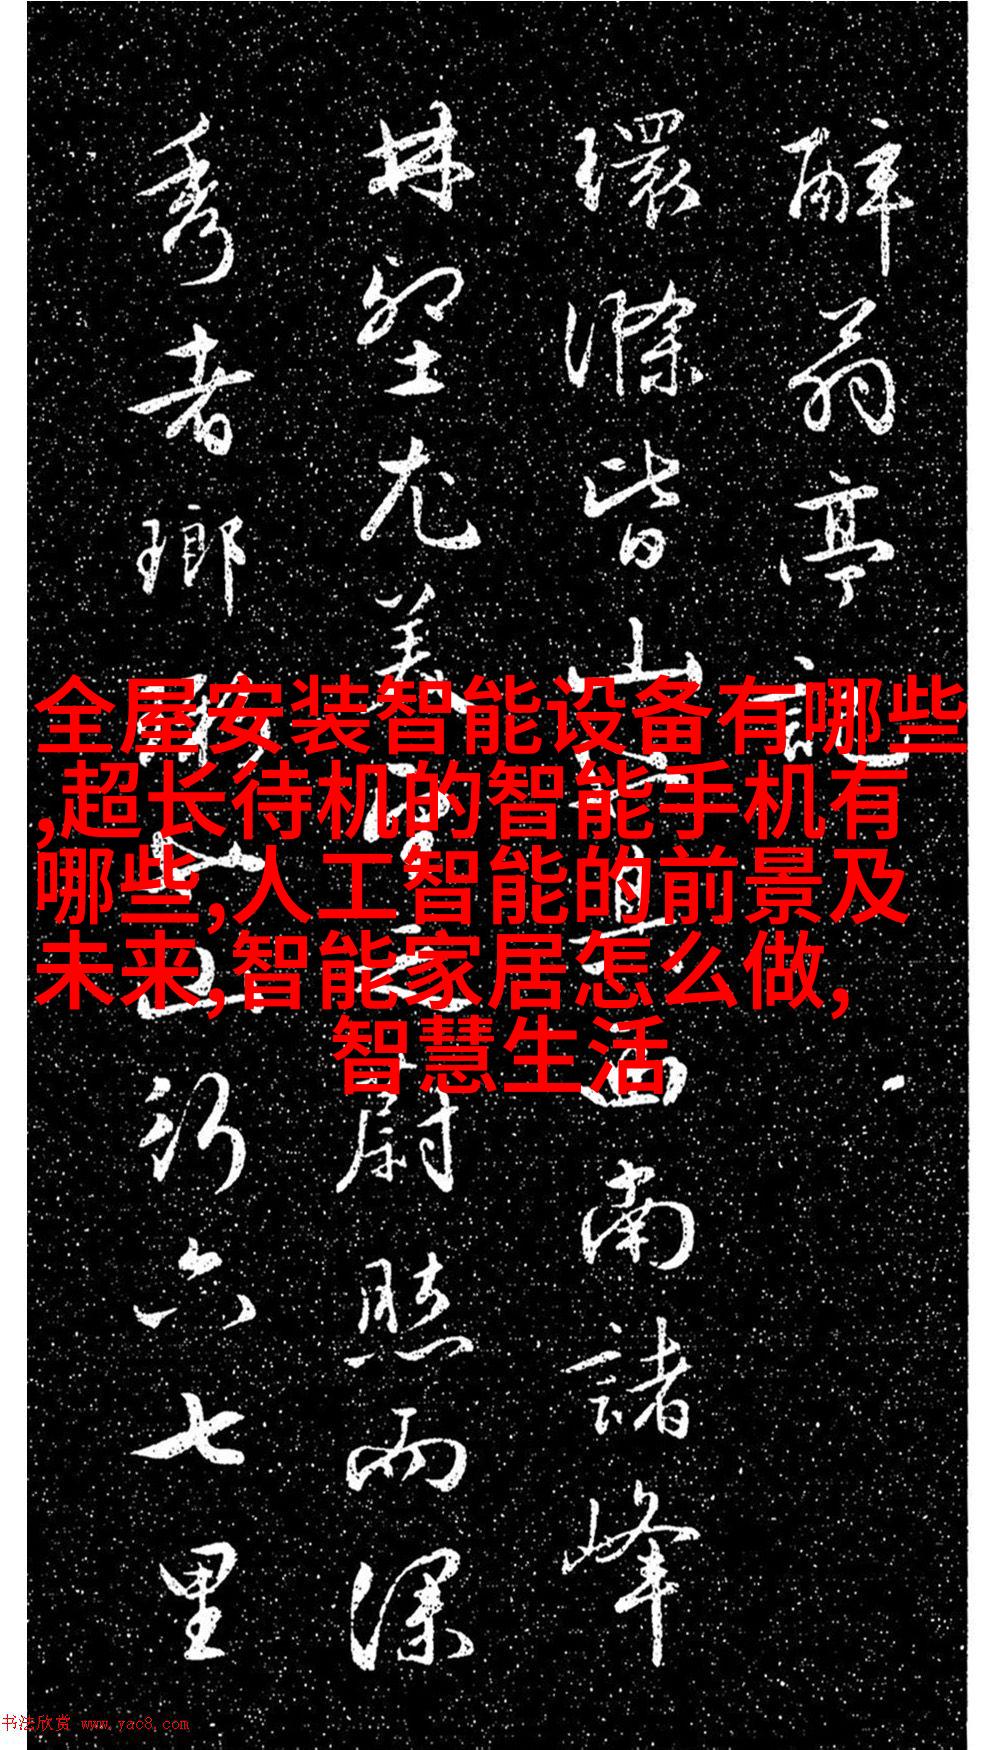 醉翁亭記
環滁皆山也其西南諸峰
林壑尤美望之蔚然而深
秀者瑯琊也山行六七里
全屋安装智能设备有哪些
,超长待机的智能手机有
哪些,人工智能的前景及
未来,智能家居怎么做,
智慧生活
书法欣赏 www.yac8.com